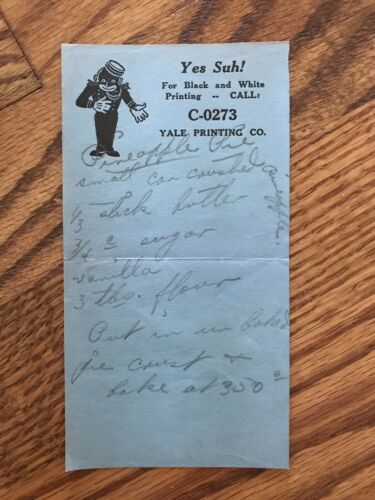 Yes Suh!
For Black and White
Printing -- CALL:
C-0273
YALE PRINTING CO.
Pineapple Pie
small can crushed pineapple
1/3 stick butter
3/4 c sugar
vanilla
3 tbs. flour
Put in unbaked
pie crust &
bake at 350°